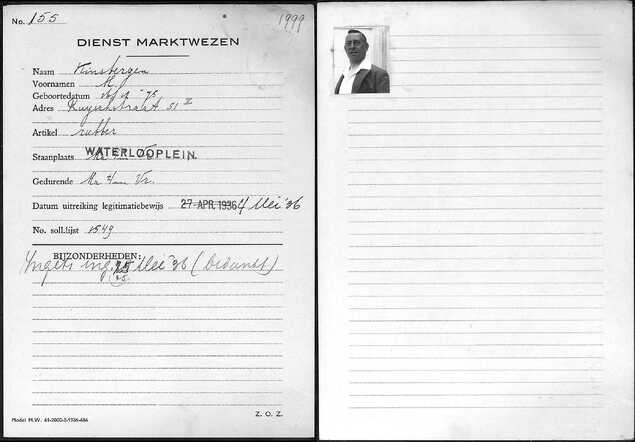 No. 155
1999
DIENST MARKTWEZEN
Naam Kinsbergen
Voornamen M.
Geboortedatum
Adres Ruyschstraat 51 II
Artikel rubber
Staanplaats WATERLOOPLEIN.
Gedurende Ma t/m Vr.
Datum uitreiking legitimatiebewijs 27 APR. 1936 4 Mei '36
No. soll.lijst 1549
BIJZONDERHEDEN:
ing. Mei '36 (bedankt)
Z. O. Z.